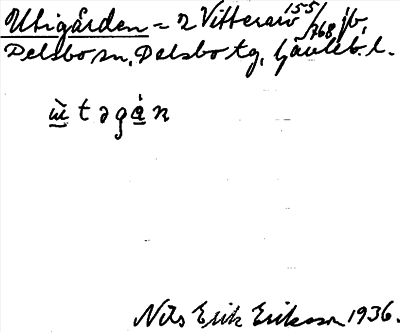 Utigården = 2 Vitterarv 155/768 jb,
Delsbo sn, Delsbo tg, Gävleb. l.
ù̱təgå̱n
Nils Erik Eriksson 1936.